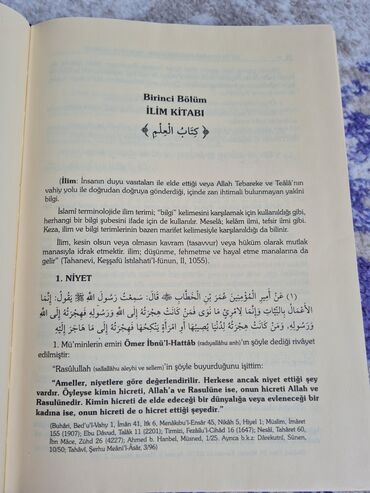 Birinci Bölüm
İLİM KİTABI
﴿ كِتَابُ الْعِلْمِ ﴾
(İlim: İnsanın duyu vasıtaları ile elde ettiği veya Allah Tebareke ve Teâlâ'nın
vahiy yolu ile doğrudan doğruya gönderdiği, içinde zan ihtimali bulunmayan yakini
bilgi.
İslamî terminolojide ilim terimi; "bilgi" kelimesini karşılamak için kullanıldığı gibi,
herhangi bir bilgi şubesini ifade için de kullanılır. Meselâ; kelâm ilmi, tefsir ilmi gibi.
Keza, ilim ve bilgi terimlerinin bazen marifet kelimesiyle karşılandığı da bilinir.
İlim, kesin olsun veya olmasın kavram (tasavvur) veya hüküm olarak mutlak
manasıyla idrak etmektir. ilim; düşünme, fehmetme ve hayal etme manalarına da
gelir" (Tahanevi, Keşşafü İstılahati'l-fünun, II, 1055).
1. NİYET
(١) عَنْ أَمِيرِ الْمُؤْمِنِينَ عُمَرَ بْنِ الْخَطَّابِ ﷺ قَالَ: سَمِعْتُ رَسُولَ اللَّهِ ﷺ يَقُولُ: إِنَّمَا
الْأَعْمَالُ بِالنِّيَّاتِ وَإِنَّمَا لِامْرِئٍ مَا نَوَى فَمَنْ كَانَتْ هِجْرَتُهُ إِلَى اللَّهِ وَرَسُولِهِ فَهِجْرَتُهُ إِلَى اللَّهِ
وَرَسُولِهِ، وَمَنْ كَانَتْ هِجْرَتُهُ لِدُنْيَا يُصِيبُهَا أَوِ امْرَأَةٍ يَنْكِحُهَا فَهِجْرَتُهُ إِلَى مَا هَاجَرَ إِلَيْهِ
1. Mü'minlerin emiri Ömer İbnü'l-Hattâb (radıyallahu anh)'ın şöyle dediği rivâyet
edilmiştir:
"Rasûlullah (sallallâhu aleyhi ve sellem)'in şöyle buyurduğunu işittim:
"Ameller, niyetlere göre değerlendirilir. Herkese ancak niyet ettiği şey
vardır. Öyleyse kimin hicreti, Allah'a ve Rasulüne ise, onun hicreti Allah ve
Rasulünedir. Kimin hicreti de elde edeceği bir dünyalığa veya evleneceği bir
kadına ise, onun hicreti de o hicret ettiği şeyedir."
(Buhâri, Bed'u'l-Vahy 1, İmân 41, Itk 6, Menâkıbu'l-Ensâr 45, Nikâh 5, Hiyel 1; Müslim, İmâret
155 (1907); Ebu Dâvud, Talâk 11 (2201); Tirmizi, Fezâilu'l-Cihâd 16 (1647); Nesâi, Tahâret 60,
İbn Mâce, Zühd 26 (4227); Ahmed b. Hanbel, Müsned, 1/25. Ayrıca b.k.z: Dârekutnî, Sünen,
10/50; Tahâvî, Şerhu Meâni'l-Âsâr, 3/96)